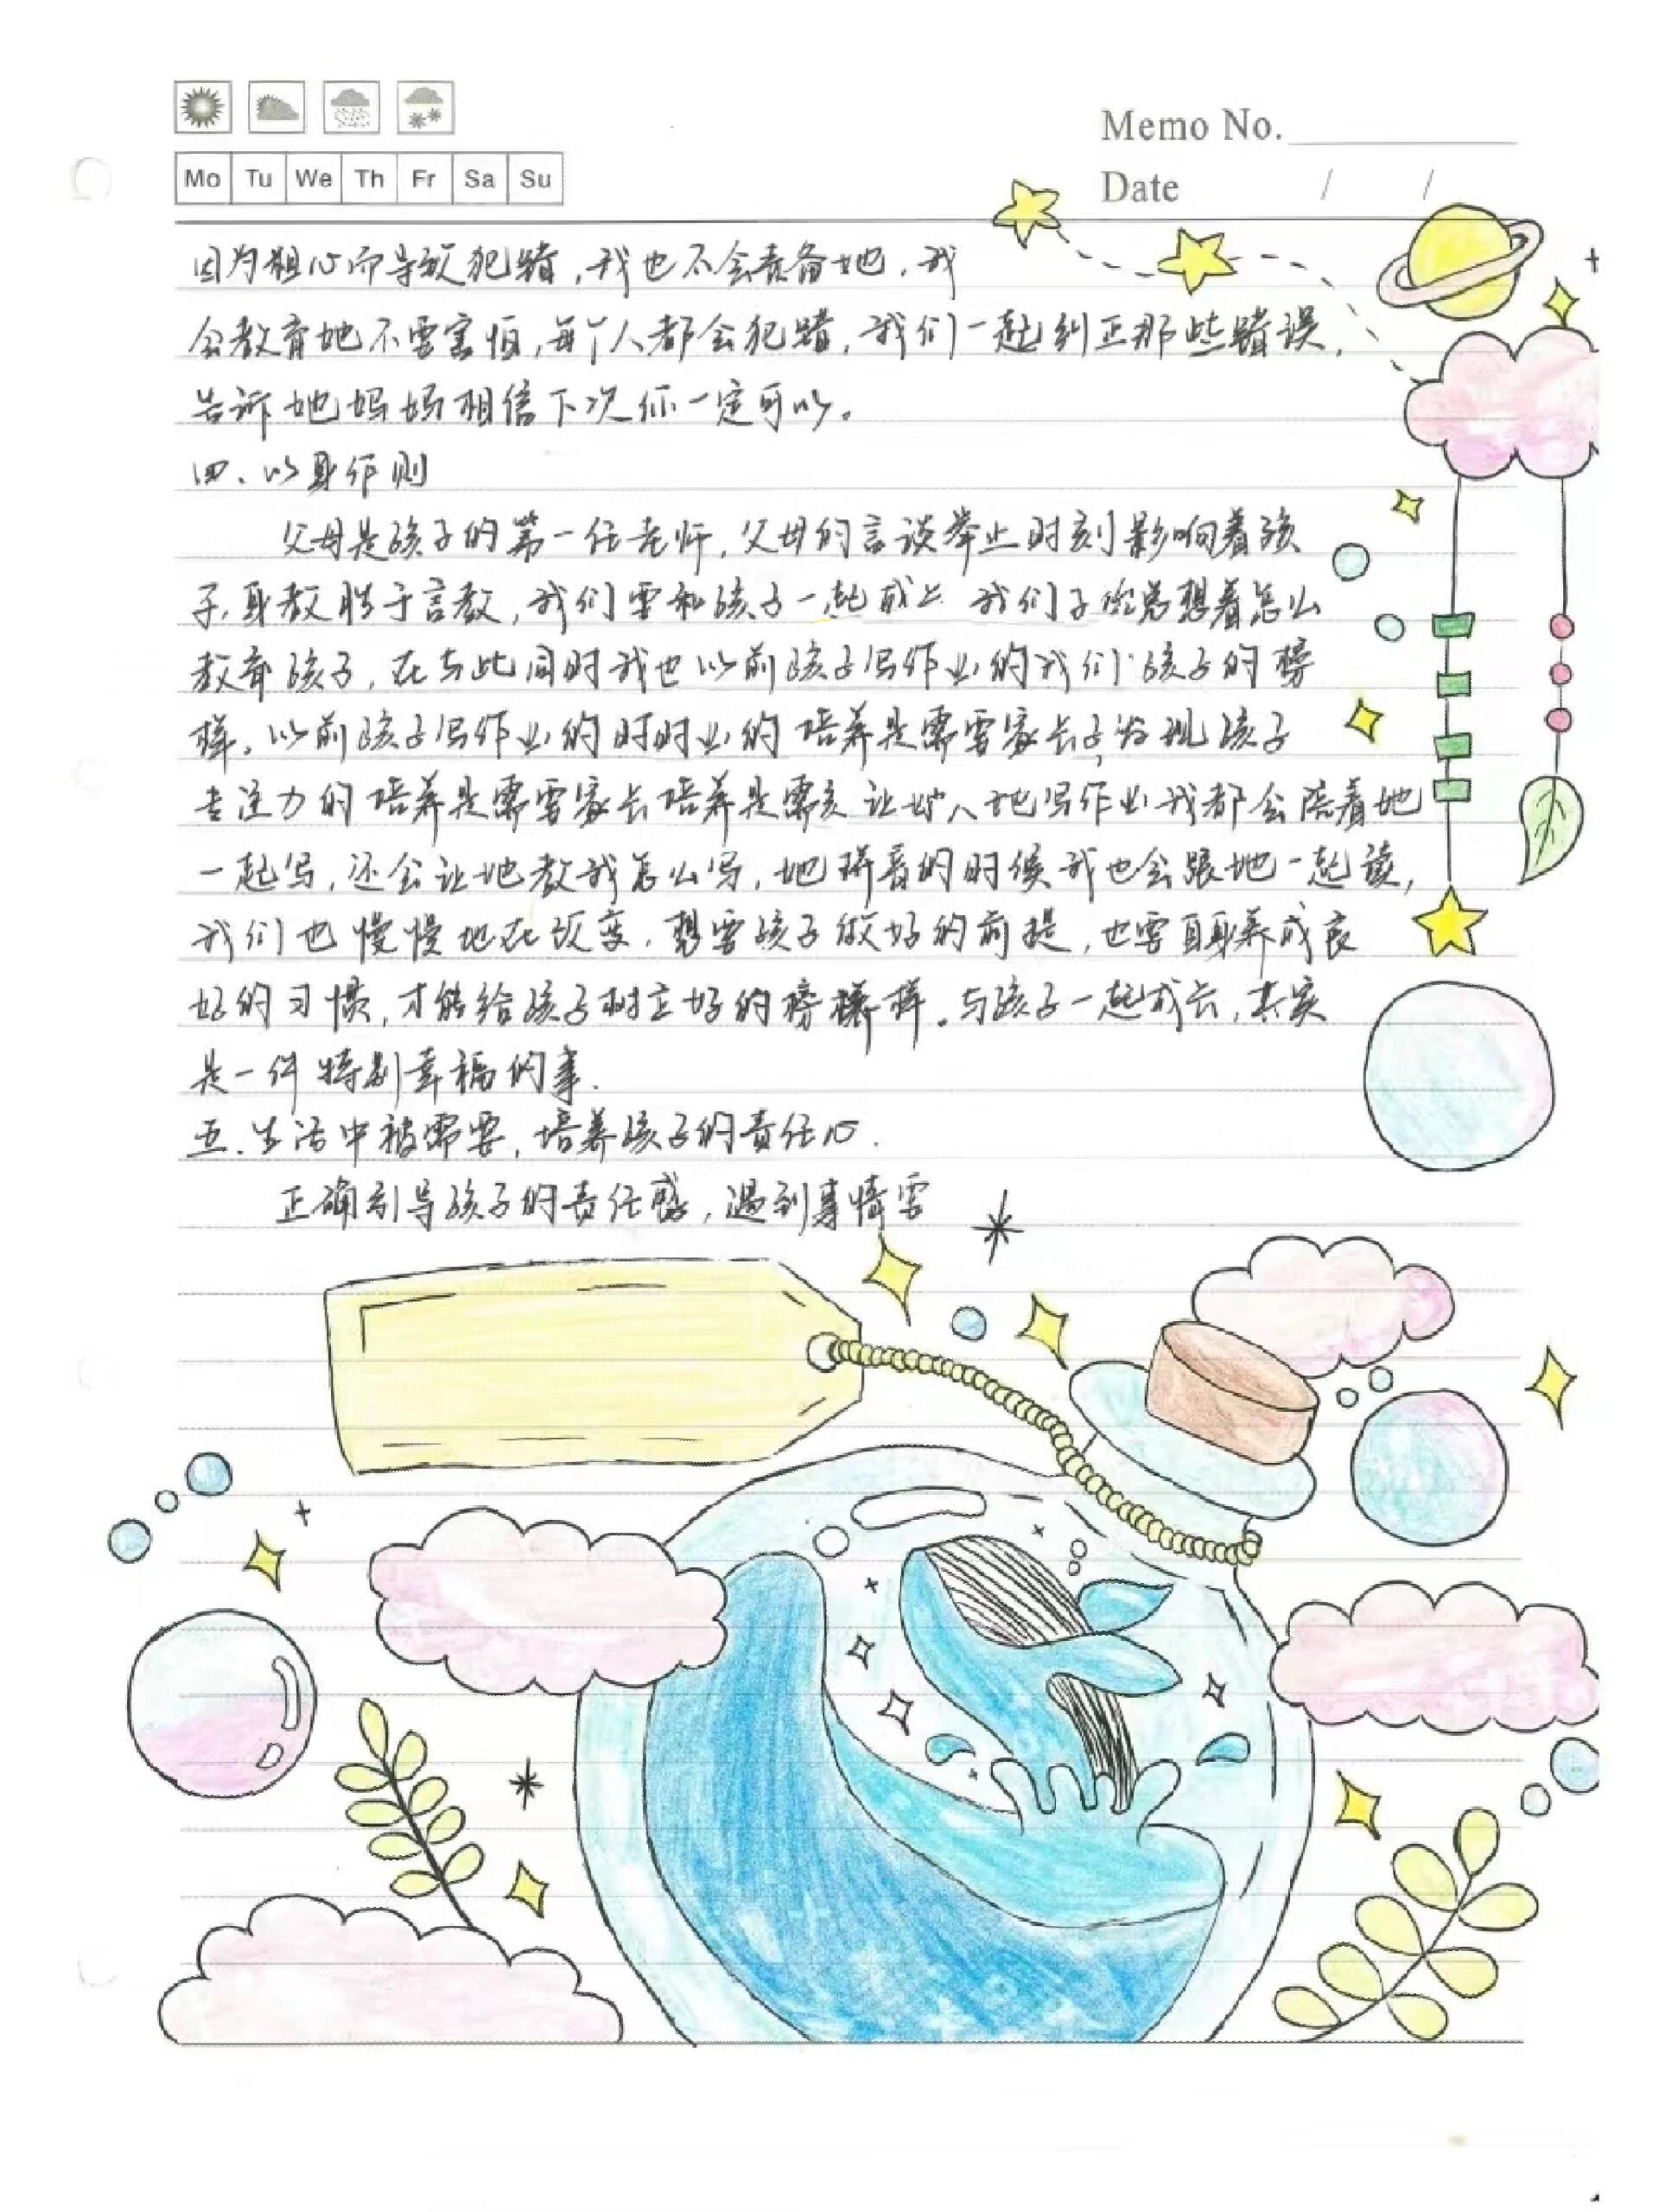 Memo No.
Mo Tu We Th Fr Sa Su
Date / /
因为粗心而导致犯错,我也不会责备她,我
会教育她不要害怕,每个人都会犯错,我们一起纠正那些错误,
告诉她妈妈相信下次你一定可以。
四、以身作则
父母是孩子的第一任老师,父母的言谈举止时刻影响着孩
子,身教胜于言教,我们要和孩子一起成 我们 总想着怎么
教育孩子,在与此同时我也以前孩子写作业的我们孩子的榜
样。以前孩子写作业的时时业的培养是需要家长 发现孩子
专注力的培养是需要家长培养是需 让 人地写作业我都会陪着她
一起写,还会让她教我怎么写,她拼音的时候我也会跟她一起读,
我们也慢慢地在改变,想要孩子做好的前提,也要自身养成良
好的习惯,才能给孩子树立好的榜样样。与孩子一起成长,其实
是一件特别幸福的事.
五.生活中被需要,培养孩子的责任心.
正确引导孩子的责任感,遇到事情要